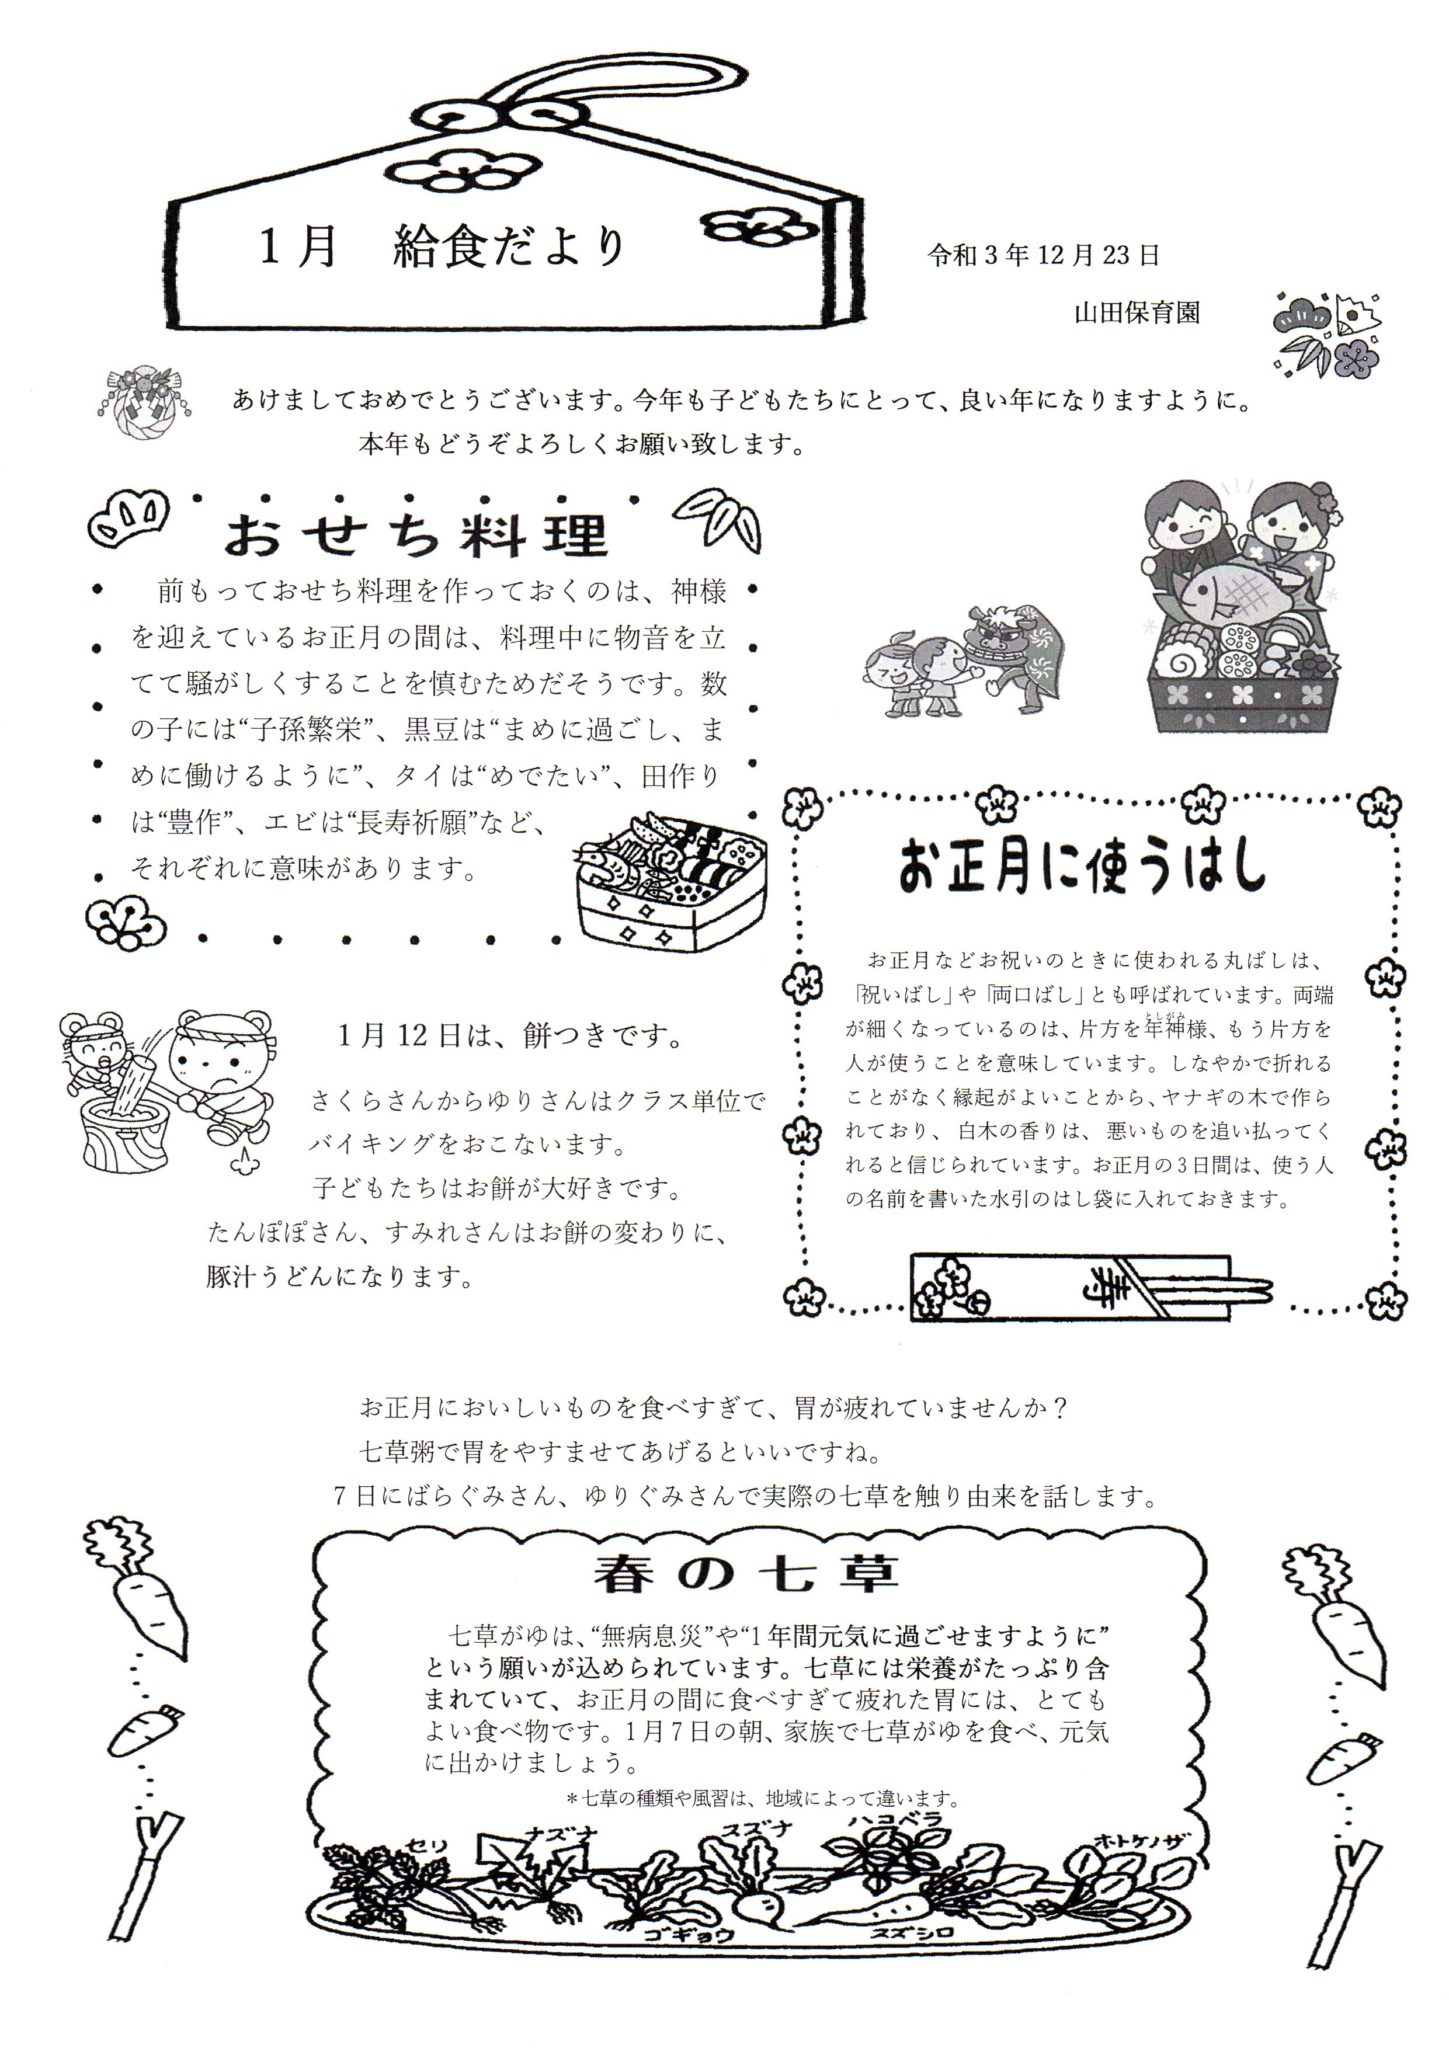 1月　給食だより
令和3年12月23日
山田保育園
あけましておめでとうございます。今年も子どもたちにとって、良い年になりますように。
本年もどうぞよろしくお願い致します。
おせち料理
前もっておせち料理を作っておくのは、神様
を迎えているお正月の間は、料理中に物音を立
てて騒がしくすることを慎むためだそうです。数
の子には“子孫繁栄”、黒豆は“まめに過ごし、ま
めに働けるように”、タイは“めでたい”、田作り
は“豊作”、エビは“長寿祈願”など、
それぞれに意味があります。
お正月に使うはし
お正月などお祝いのときに使われる丸ばしは、
「祝いばし」や「両口ばし」とも呼ばれています。両端
が細くなっているのは、片方を年神様、もう片方を
としがみ
人が使うことを意味しています。しなやかで折れる
ことがなく縁起がよいことから、ヤナギの木で作ら
れており、白木の香りは、悪いものを追い払ってく
れると信じられています。お正月の3日間は、使う人
の名前を書いた水引のはし袋に入れておきます。
寿
1月12日は、餅つきです。
さくらさんからゆりさんはクラス単位で
バイキングをおこないます。
子どもたちはお餅が大好きです。
たんぽぽさん、すみれさんはお餅の変わりに、
豚汁うどんになります。
お正月においしいものを食べすぎて、胃が疲れていませんか？
七草粥で胃をやすませてあげるといいですね。
7日にばらぐみさん、ゆりぐみさんで実際の七草を触り由来を話します。
春の七草
七草がゆは、“無病息災”や“1年間元気に過ごせますように”
という願いが込められています。七草には栄養がたっぷり含
まれていて、お正月の間に食べすぎて疲れた胃には、とても
よい食べ物です。1月7日の朝、家族で七草がゆを食べ、元気
に出かけましょう。
＊七草の種類や風習は、地域によって違います。
セリ
ナズナ
スズナ
ハコベラ
ホトケノザ
ゴギョウ
スズシロ